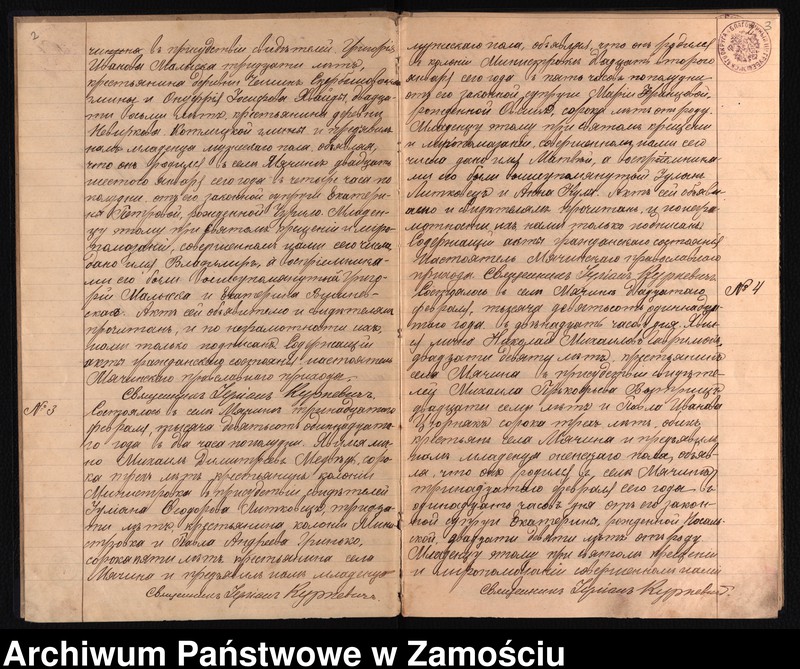 2
чинона, въ присудствіи свидѣтелей Григорія
Иванова Малыска тридцати лѣтъ,
крестьянина деревни
гмины и Онуфрія Іосифова двадца-
ти восьми лѣтъ, крестьянина деревни
Невиркова Котлицкой гмины и предъявилъ
намъ младенца мужескаго пола, объявляя,
что онъ родился въ селѣ Мячинѣ двадцать
шестого января сего года въ четыре часа по
полудни отъ его законной супруги Екатери-
ны Петровой, рожденной Младен-
цу этому при святомъ крещеніи и миро-
помазаніи, совершенномъ нами сего числа,
дано имя Владимиръ, а воспріемника-
ми его были вышеупомянутый Григо-
рій Малыска и Екатерина
Актъ сей объявителю и свидѣтелямъ
прочитанъ, и по неграмотности ихъ,
нами только подписанъ. Содержащій
акты гражданскаго состоянія настоятель
Мячинскаго православнаго прихода
Священникъ Куркевичъ
№ 3
Состоялось въ селѣ Мячинѣ тринадцатого
февраля, тысяча девятьсотъ одиннадцата-
го года въ два часа пополудни. Явился ли-
чно Михаилъ Димитріевъ Медвѣдь, соро-
ка трехъ лѣтъ, крестьянинъ колоніи
Министровка въ присутствіи свидѣтелей
Ѳеодорова Литковца, тридца-
ти лѣтъ крестьянина, колоніи Мини-
стровка и Павла Андреева Гринько,
сорока пяти лѣтъ, крестьянина села
Мячина и предъявилъ намъ младенца
Священникъ Куркевичъ.
3
мужескаго пола, объявляя, что онъ родился
въ колоніи Министровка двадцать второго
января сего года въ пять часовъ пополудни
отъ его законной супруги Маріи Францовой
рожденной сорока лѣтъ отъ роду.
Младенцу этому при святомъ крещеніи
и миропомазаніи, совершенномъ нами сего
числа дано имя Матвѣй, а воспріемника-
ми его были вышеупомянутый
Литковецъ и Анна Актъ сей объяви-
телю и свидѣтелямъ прочитанъ, и по негра-
мотности ихъ нами только подписанъ
Содержащій акты гражданскаго состоянія
Настоятель Мячинскаго православнаго
прихода. Священникъ Куркевичъ
№ 4
Состоялось въ селѣ Мячинѣ двадцатаго
февраля, тысяча девятьсотъ одиннадца-
таго года въ двѣнадцать часовъ дня. Явил-
ся лично Николай Михайловъ
двадцати девяти лѣтъ, крестьянинъ
села Мячина въ присутствіи свидѣте-
лей Михаила Прокофьева
двадцати семи лѣтъ и Павла Иванова
сорока трехъ лѣтъ, обоихъ
крестьянъ села Мячина и предъявилъ
намъ младенца женскаго пола, объяв-
ляя, что онъ родился въ селѣ Мячинѣ
тринадцатаго февраля сего года въ
одинадцать часовъ дня отъ его закон-
ной супруги Екатерины, рожденной
двадцати девяти лѣтъ отъ роду.
Младенцу этому при святомъ крещеніи
и миропомазаніи совершенномъ нами
Священникъ Куркевичъ.
Archiwum Państwowe w Zamościu